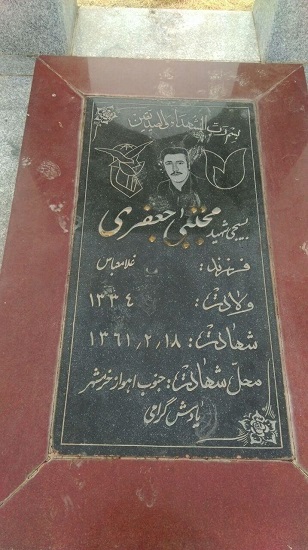 بسم رب الشهداء والصدیقین
بسیجی شهید مجتبی جعفری
فرزند: غلامعباس
ولادت: ۱۳۳۴
شهادت: ۱۳۶۱٫۲٫۱۸
محل شهادت: جنوب اهواز خرمشهر
یادش گرامی